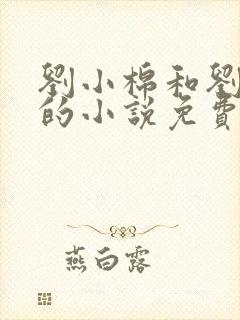 劉小棉和劉
的小說免費
燕白露